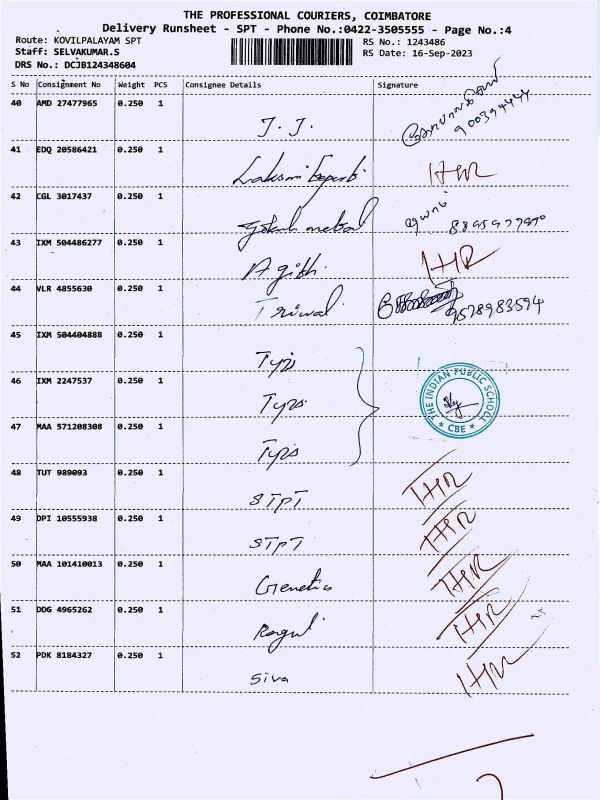 THE PROFESSIONAL COURIERS, COIMBATORE
Delivery Runsheet - SPT - Phone No.:0422-3505555 - Page No.:4
Route: KOVILPALAYAM SPT
Staff: SELVAKUMAR.S
DRS No.: DCJB124348604
RS No.: 1243486
RS Date: 16-Sep-2023
S No Consignment No Weight PCS Consignee Details Signature
40 AMD 27477965 0.250 1 J. J.
41 EDQ 20586421 0.250 1 Laksmi IHR
42 CGL 3017437 0.250 1
43 IXM 504486277 0.250 1 Agith. IHR
44 VLR 4855630 0.250 1 9578983594
45 IXM 504404888 0.250 1 Typs
46 IXM 2247537 0.250 1 Typs THE INDIAN PUBLIC SCHOOL CBE
47 MAA 571208308 0.250 1 Typs
48 TUT 989093 0.250 1 STPT IHR
49 DPI 10555938 0.250 1 STPT IHR
50 MAA 101410013 0.250 1 Genetics IHR
51 DDG 4965262 0.250 1 Ragul IHR
52 PDK 8184327 0.250 1 Siva IHR